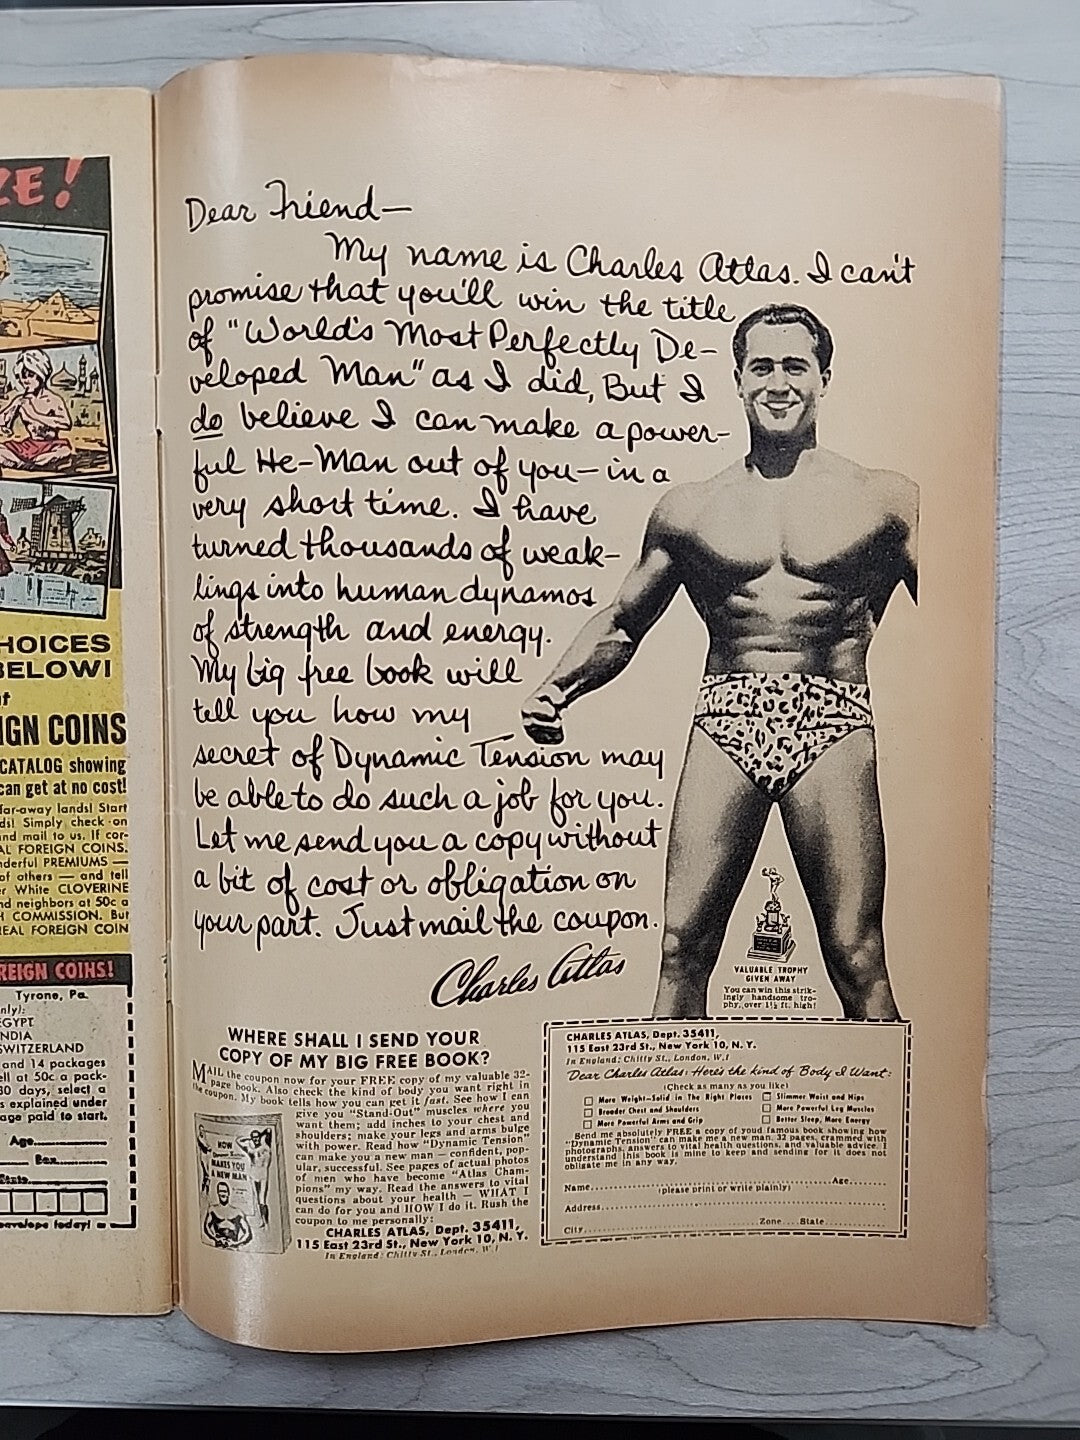 ZE!
HOICES
BELOW!
IGN COINS
CATALOG showing
can get at no cost!
far-away lands! Start
ds! Simply check on
nd mail to us. If cor-
AL FOREIGN COINS.
nderful PREMIUMS —
of others — and tell
r White CLOVERINE
nd neighbors at 50c a
H COMMISSION. But
REAL FOREIGN COIN
REIGN COINS!
Tyrone, Pa.
nly):
EGYPT
NDIA
SWITZERLAND
and 14 packages
ell at 50c a pack-
30 days, select a
s explained under
age paid to start.
Age
Box
State
envelope today!
Dear Friend—
My name is Charles Atlas. I can't
promise that you'll win the title
of "World's Most Perfectly De-
veloped Man" as I did, But I
do believe I can make a power-
ful He-Man out of you—in a
very short time. I have
turned thousands of weak-
lings into human dynamos
of strength and energy.
My big free book will
tell you how my
secret of Dynamic Tension may
be able to do such a job for you.
Let me send you a copy without
a bit of cost or obligation on
your part. Just mail the coupon.
Charles Atlas
VALUABLE TROPHY
GIVEN AWAY
You can win this strik-
ingly handsome tro-
phy, over 1½ ft. high!
WHERE SHALL I SEND YOUR
COPY OF MY BIG FREE BOOK?
MAIL the coupon now for your FREE copy of my valuable 32-
page book. Also check the kind of body you want right in
the coupon. My book tells you how you can get it fast. See how I can
give you "Stand-Out" muscles where you
want them; add inches to your chest and
shoulders; make your legs and arms bulge
with power. Read how "Dynamic Tension"
can make you a new man — confident, pop-
ular, successful. See pages of actual photos
of men who have become "Atlas Cham-
pions" my way. Read the answers to vital
questions about your health — WHAT I
can do for you and HOW I do it. Rush the
coupon to me personally:
HOW
Dynamic Tension
MAKES YOU
A NEW MAN
CHARLES ATLAS, Dept. 35411,
115 East 23rd St., New York 10, N. Y.
In England: Chitty St., London, W.1
CHARLES ATLAS, Dept. 35411,
115 East 23rd St., New York 10, N. Y.
In England: Chitty St., London, W.1
Dear Charles Atlas: Here's the kind of Body I Want:
(Check as many as you like)
More Weight—Solid in The Right Places
Broader Chest and Shoulders
More Powerful Arms and Grip
Slimmer Waist and Hips
More Powerful Leg Muscles
Better Sleep, More Energy
Send me absolutely FREE a copy of your famous book showing how
"Dynamic Tension" can make me a new man. 32 pages, crammed with
photographs, answers to vital health questions, and valuable advice. I
understand this book is mine to keep and sending for it does not
obligate me in any way.
Name Age
(please print or write plainly)
Address
City Zone State